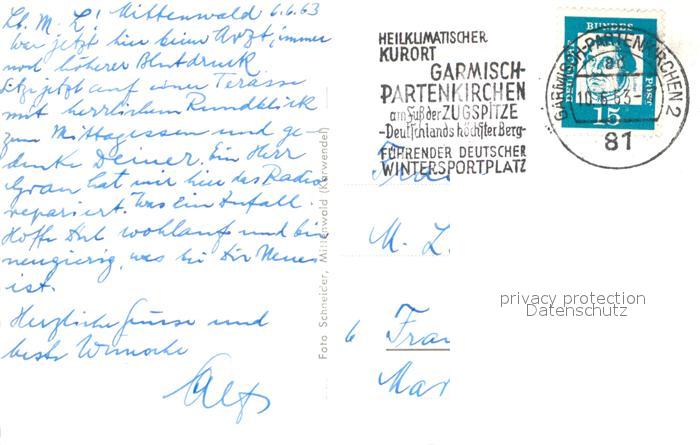 Lb. M. L! Mittenwald 6.6.63
War jetzt hier beim Arzt, immer
noch höherer Blutdruck
Sitz jetzt auf einer Terasse
mit herrlichem Rundblick
zum Mittagessen und ge-
denke Deiner. Ein Herr
Gran hat mir hier das Radio
repariert. Was ein Zufall.
Hoffe Dich wohlauf und bin
neugierig, was bei Dir Neues
ist.
Herzliche Grüsse und
beste Wünsche
Foto Schneider, Mittenwald (Karwendel)
HEILKLIMATISCHER
KURORT
GARMISCH-
PARTENKIRCHEN
am Fuß der ZUGSPITZE
-Deutschlands höchster Berg-
FÜHRENDER DEUTSCHER
WINTERSPORTPLATZ
DEUTSCHE
BUNDES
POST
15
GARMISCH-PARTENKIRCHEN 2
ad
10.6.63-
81
M. L.
6 Fran
Mar
privacy protection
Datenschutz